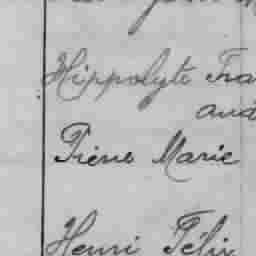 Hippolyte Fra
and
Pierre Marie
Henri Félix